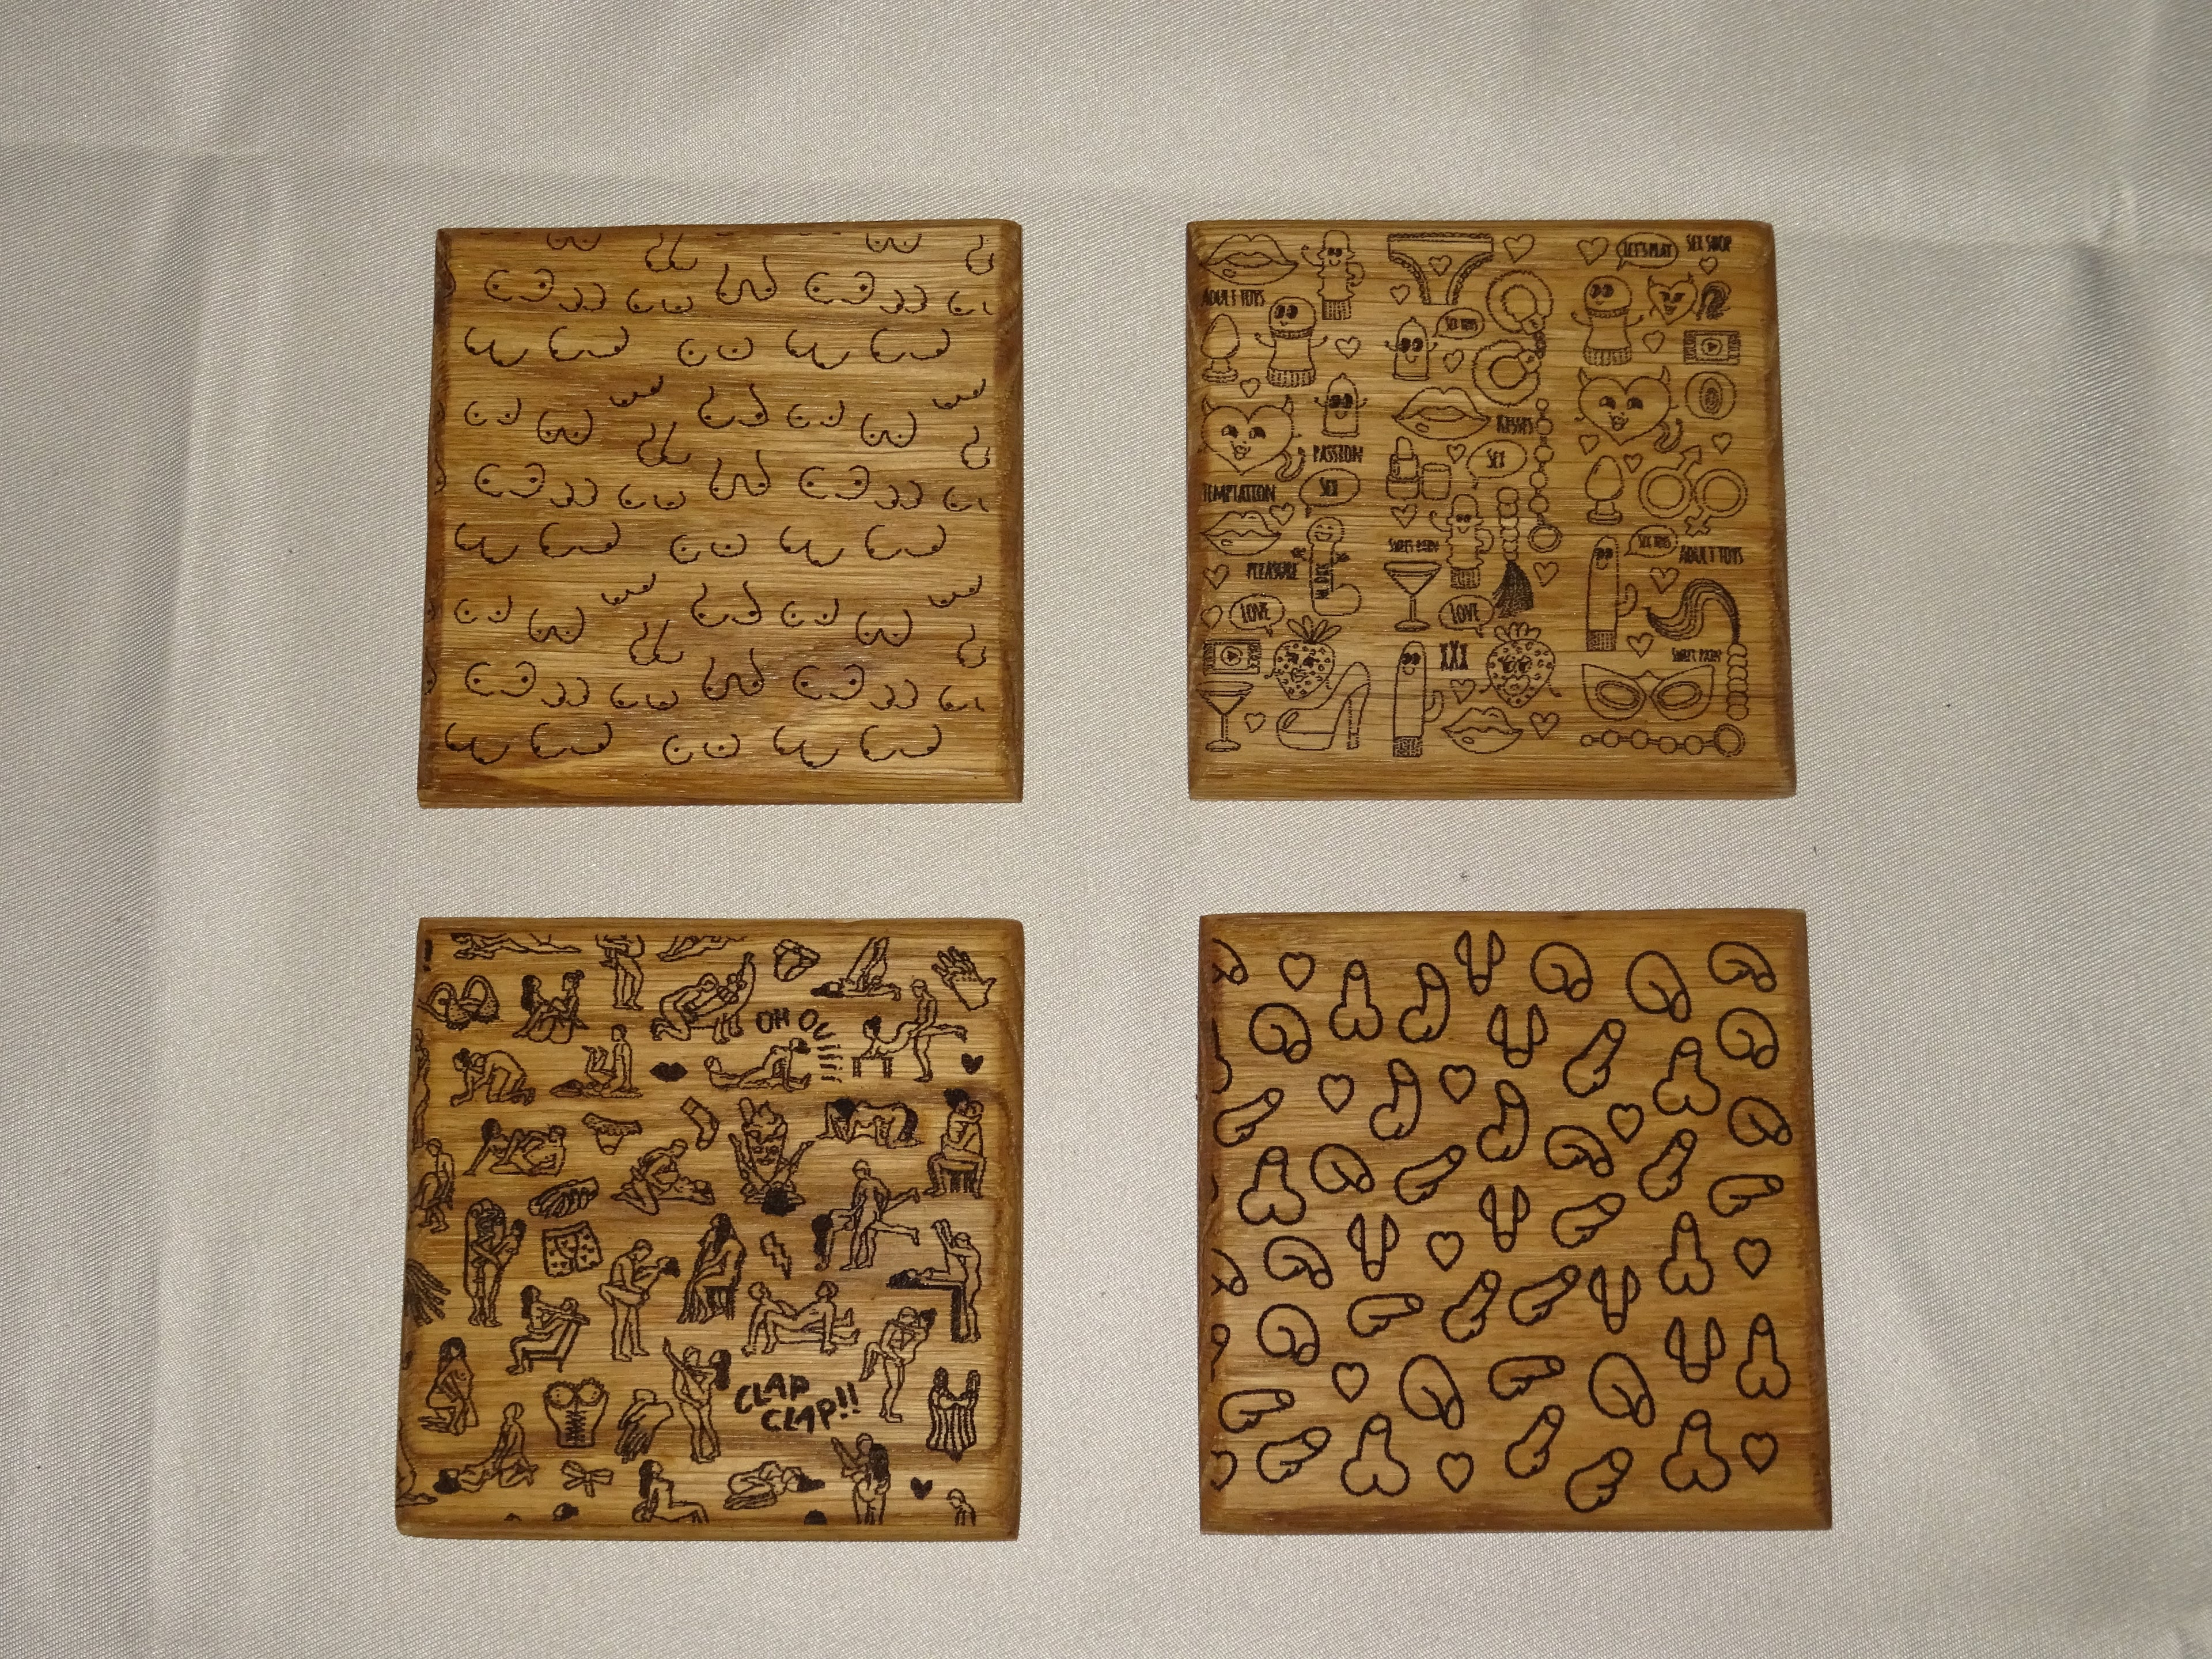 LET'S PLAY
SEX SHOP
ADULT TOYS
SEX TOYS
KISSES
PASSION
SEX
TEMPTATION
SEX
SEX TOYS
ADULT TOYS
PLEASURE
MORE
LOVE
LOVE
XXX
OH OU
CLAP
CLAP!!